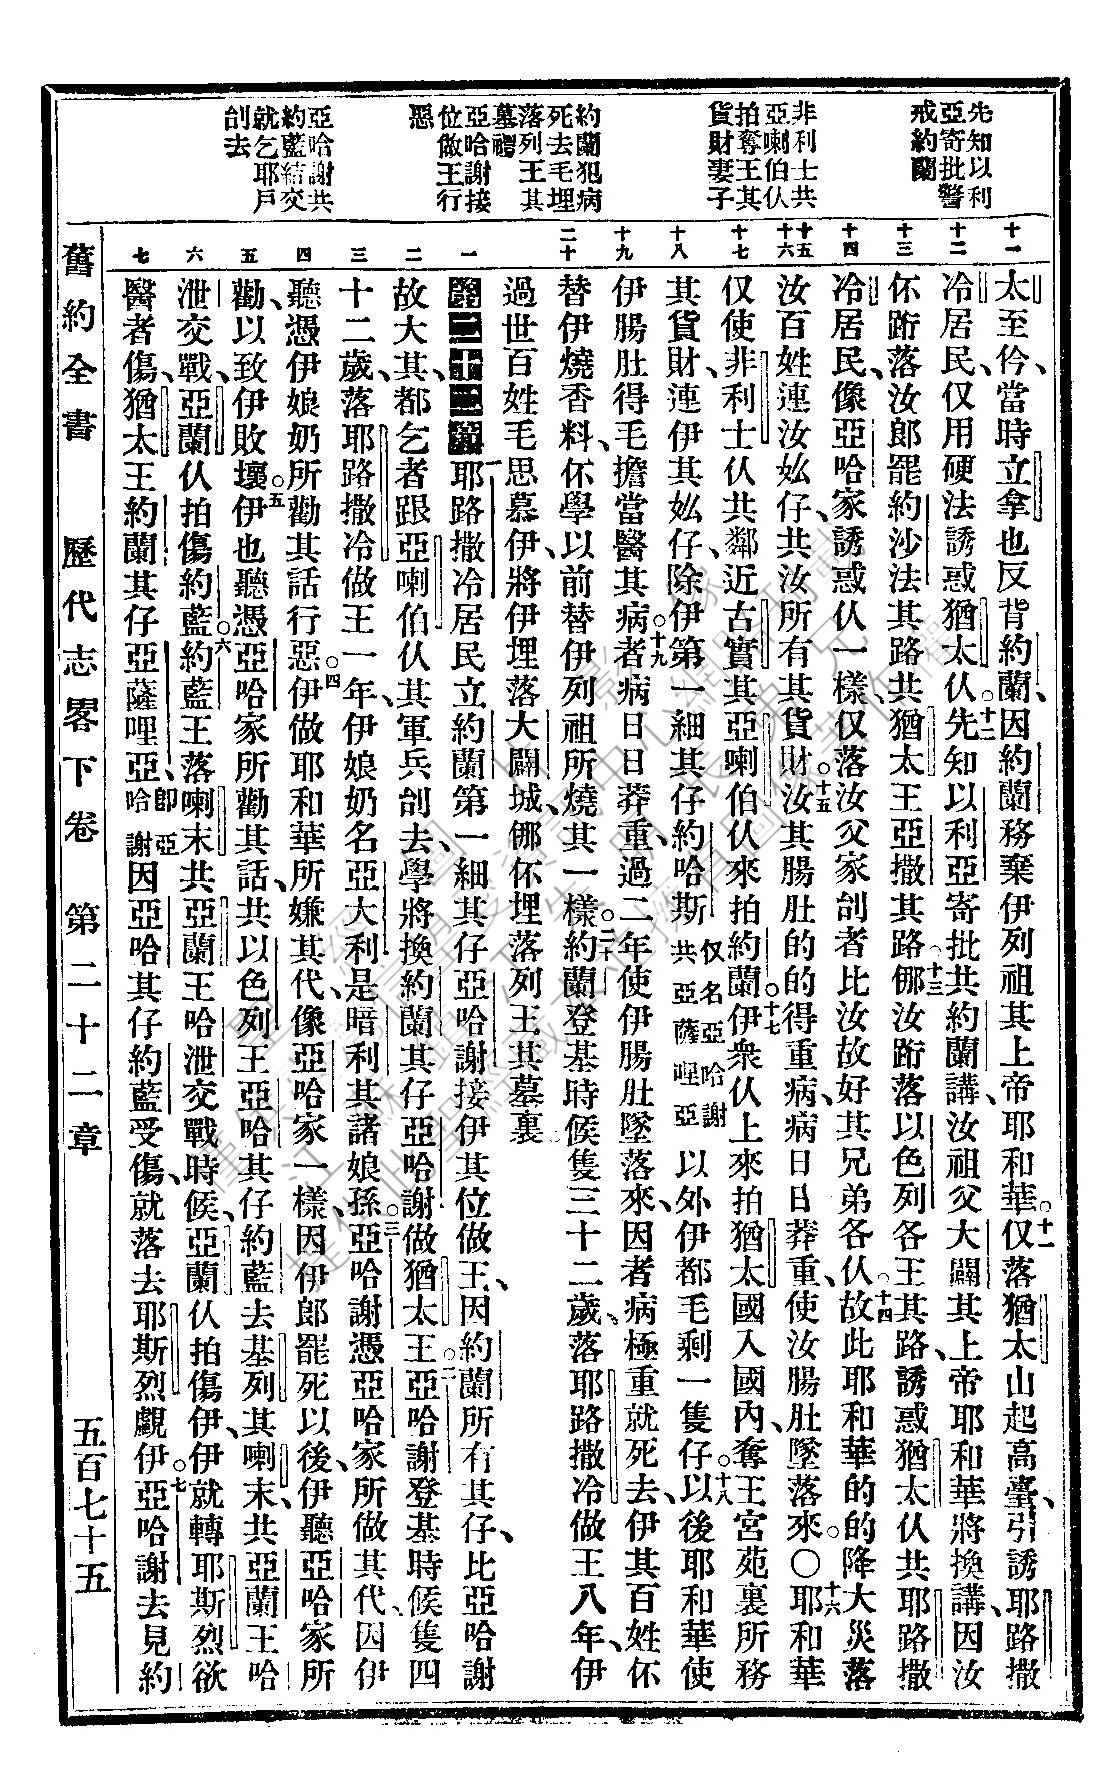 先知以利
亞寄批警
戒約蘭
非利士共
亞喇伯仈
拍奪王其
貨財妻子
約蘭犯病
死去毛埋
落列王其
墓禮
亞哈謝接
位做王行
惡
亞哈謝共
約藍結交
就乞耶戶
刣去
十一
十二
十三
十四
十五
十六
十七
十八
十九
二十
一
二
三
四
五
六
七
太至仱、當時立拿也反背約蘭、因約蘭務棄伊列祖其上帝耶和華。十一仅落猶太山起高臺、引誘耶路撒
冷居民、仅用硬法誘惑猶太仈。十二先知以利亞寄批共約蘭講、汝祖父大闢其上帝耶和華將換講、因汝
伓跨落汝郎罷約沙法其路、共猶太王亞撒其路、十三倗汝跨落以色列各王其路、誘惑猶太仈共耶路撒
冷居民、像亞哈家誘惑仈一樣、仅落汝父家刣者比汝故好其兄弟各仈。十四故此耶和華的的降大災落
汝百姓連汝妷仔、共汝所有其貨財。十五汝其腸肚的的得重病、病日日莽重、使汝腸肚墜落來。〇十六耶和華
仅使非利士仈共鄰近古實其亞喇伯仈來拍約蘭。十七伊衆仈上來拍猶太國、入國內、奪王宮苑裏所務
其貨財、連伊其妷仔、除伊第一細其仔約哈斯仅名亞哈謝共亞薩哩亞以外、伊都毛剩一隻仔。十八以後耶和華使
伊腸肚得毛擔當醫其病。十九者病日日莽重、過二年使伊腸肚墜落來、因者病極重就死去、伊其百姓伓
替伊燒香料、伓學以前替伊列祖所燒其一樣。二十約蘭登基時候隻三十二歲、落耶路撒冷做王八年、伊
過世百姓毛思慕伊、將伊埋落大闢城、倗伓埋落列王其墓裏
第二十二章一耶路撒冷居民立約蘭第一細其仔亞哈謝接伊其位做王、因約蘭所有其仔、比亞哈謝
故大其、都乞者跟亞喇伯仈其軍兵刣去、學將換約蘭其仔亞哈謝做猶太王。二亞哈謝登基時候隻四
十二歲、落耶路撒冷做王一年、伊娘奶名亞大利、是暗利其諸娘孫。三亞哈謝憑亞哈家所做其代、因伊
聽憑伊娘奶所勸其話行惡。四伊做耶和華所嫌其代、像亞哈家一樣、因伊郎罷死以後、伊聽亞哈家所
勸、以致伊敗壞。五伊也聽憑亞哈家所勸其話、共以色列王亞哈其仔約藍去基列其喇末、共亞蘭王哈
泄交戰、亞蘭仈拍傷約藍。六約藍王落喇末共亞蘭王哈泄交戰時候、亞蘭仈拍傷伊、伊就轉耶斯烈欲
醫者傷、猶太王約蘭其仔亞薩哩亞、即亞哈謝因亞哈其仔約藍受傷、就落去耶斯烈覷伊。七亞哈謝去見約
舊約全書　歷代志畧下卷　第二十二章　五百七十五